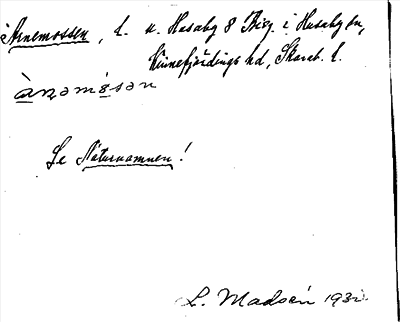 Arnemossen, t. u. Husaby 8 Thg. i Husaby sn,
Kinnefjärdings hd, Skarab. l.
ànǝmósǝn
Se Naturnamnen!
L. Madsén 1932